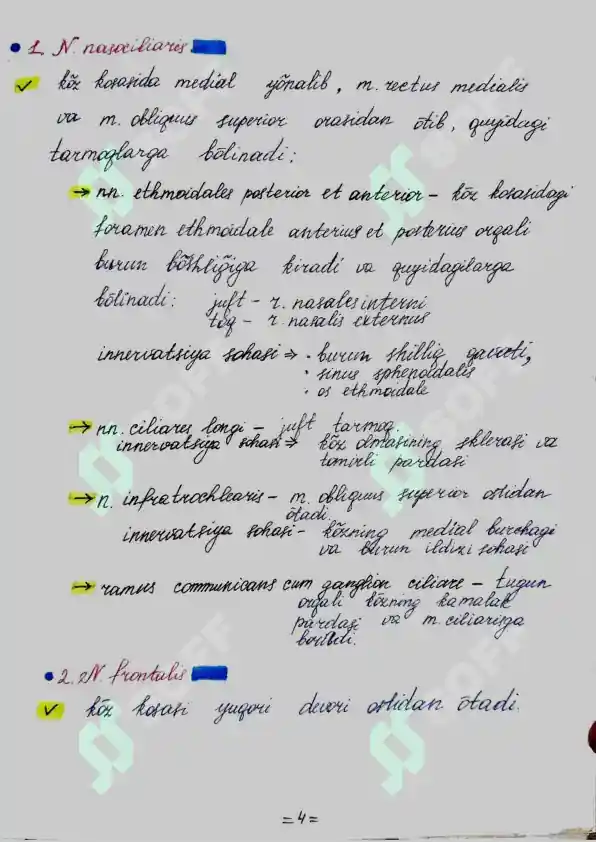 1. N. nasociliaris.
kõz kosasida medial yõnalib, m. rectus medialis
va m. obliquus superior orasidan õtib, quyidagi
tarmoqlarga bõlinadi:
→ nn. ethmoidales posterior et anterior – kõz kosasidagi
foramen ethmoidale anterius et posterius orqali
burun bõshlig̃iga kiradi va quyidagilarga
bõlinadi: juft – r. nasales interni
toq – r. nasalis externus
innervatsiya sohasi ⇒ · burun shilliq qavati,
· sinus sphenoidalis
· os ethmoidale
→ nn. ciliares longi – juft tarmoq.
innervatsiya sohasi ⇒ kõz olmasining sklerasi va
tomirli pardasi
→ n. infratrochlearis – m. obliquus superior ostidan
õtadi.
innervatsiya sohasi – kõzning medial burchagi
va burun ildizi sohasi
→ ramus communicans cum ganglion ciliare – tugun
orqali kõzning kamalak
pardasi va m. ciliarisga
boriladi.
2. N. frontalis
kõz kosasi yuqori devori ostidan õtadi.
= 4 =
SOFF
SOFF
SOFF
SOFF
SOFF
SOFF